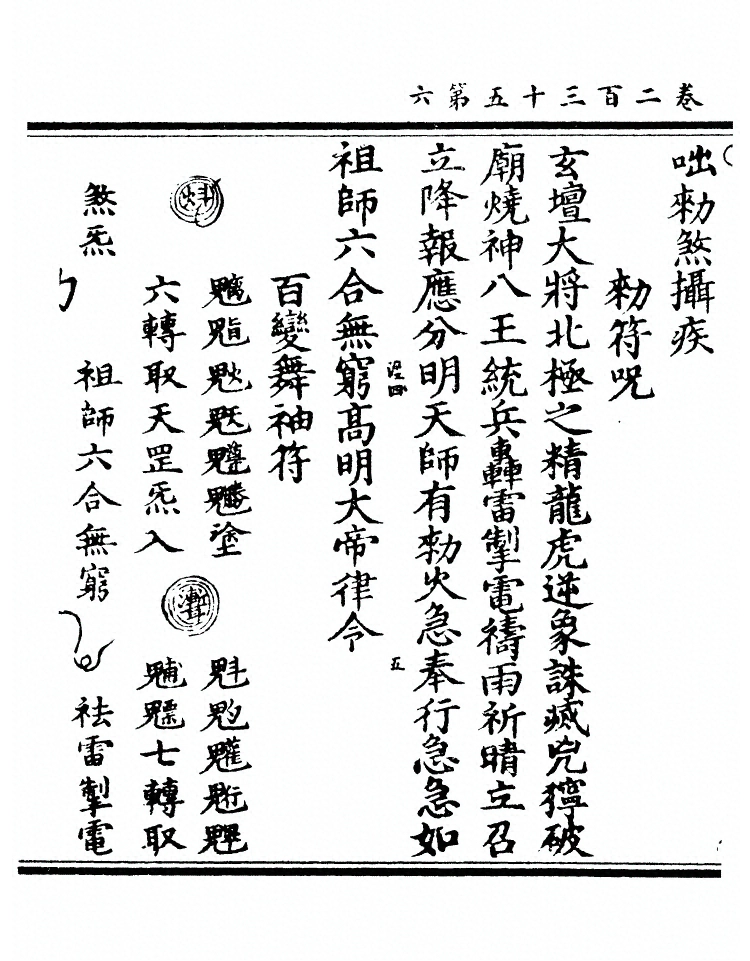 卷二百三十五第六
咄敕煞攝疾
敕符咒
玄壇大將北極之精龍虎逆象誅滅兇獰破
廟燒神八王統兵轟雷掣電禱雨祈晴立召
立降報應分明天師有敕火急奉行急急如
四
五
祖師六合無窮高明大帝律令
百變舞袖符
塗
魁魓
炓
六轉取天罡炁入
魒七轉取
煞炁
祖師六合無窮
祛雷掣電